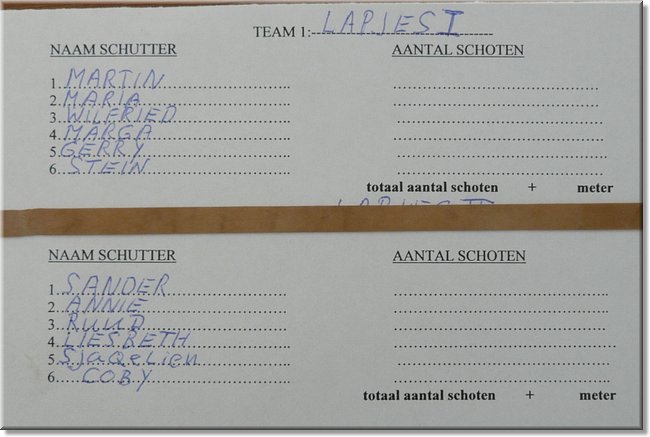 TEAM 1: LAPJES I
NAAM SCHUTTER AANTAL SCHOTEN
1. MARTIN
2. MARIA
3. WILFRIED
4. MARGA
5. GERRY
6. STEIN
totaal aantal schoten + meter
LAPJES II
NAAM SCHUTTER AANTAL SCHOTEN
1. SANDER
2. ANNIE
3. RUUD
4. LIESBETH
5. Sjaqelien
6. COBY
totaal aantal schoten + meter